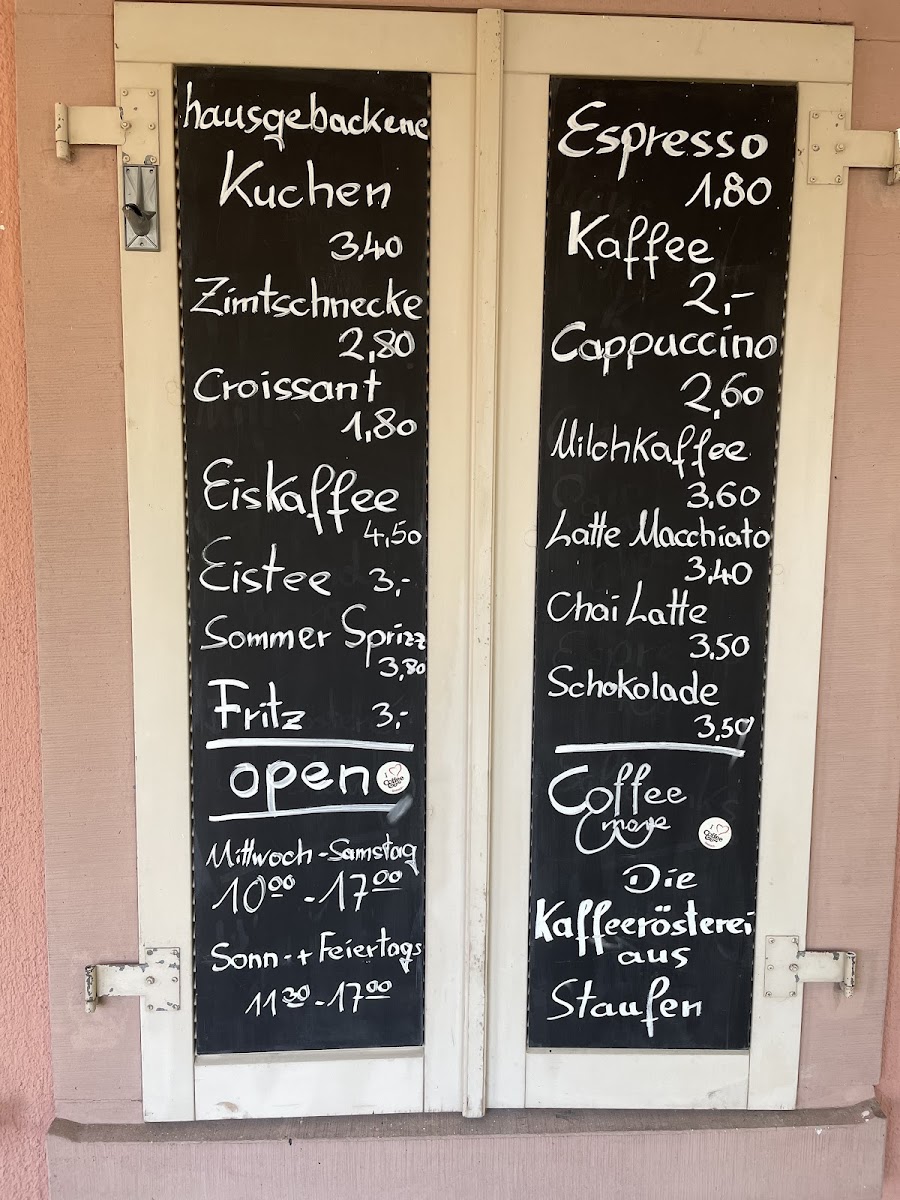 hausgebackene
Kuchen
3.40
Zimtschnecke
2,80
Croissant
1,80
Eiskaffee
4,50
Eistee 3,-
Sommer Sprizz
3,80
Fritz 3,-
open
Mittwoch-Samstag
10⁰⁰-17⁰⁰
Sonn-+Feiertags
11³⁰-17⁰⁰
Espresso
1,80
Kaffee
2,-
Cappuccino
2,60
Milchkaffee
3.60
Latte Macchiato
3,40
Chai Latte
3.50
Schokolade
3,50
Coffee
more
Die
Kaffeerösterei
aus
Staufen